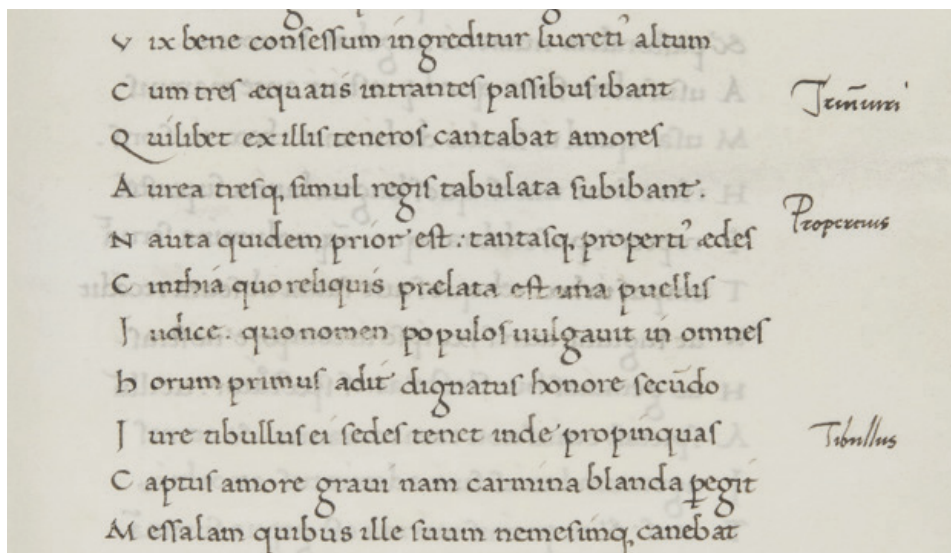 Vix bene consessum ingreditur lucreti' altum
Cum tres æquatis intrantes passibus ibant
Quilibet ex illis teneros cantabat amores
Aurea tresq, simul regis tabulata subibant.
Nauta quidem prior est: tantasq, properti' ædes
Cinthia quo reliquis prælata est una puellis
Judice quo nomen populos uulgauit in omnes
Horum primus adit dignatus honore secūdo
Jure tibullus ei sedes tenet inde propinquas
Captus amore graui nam carmina blanda pegit
Messalam quibus ille suum nemesimq, canebat
Propertius
Tibullus